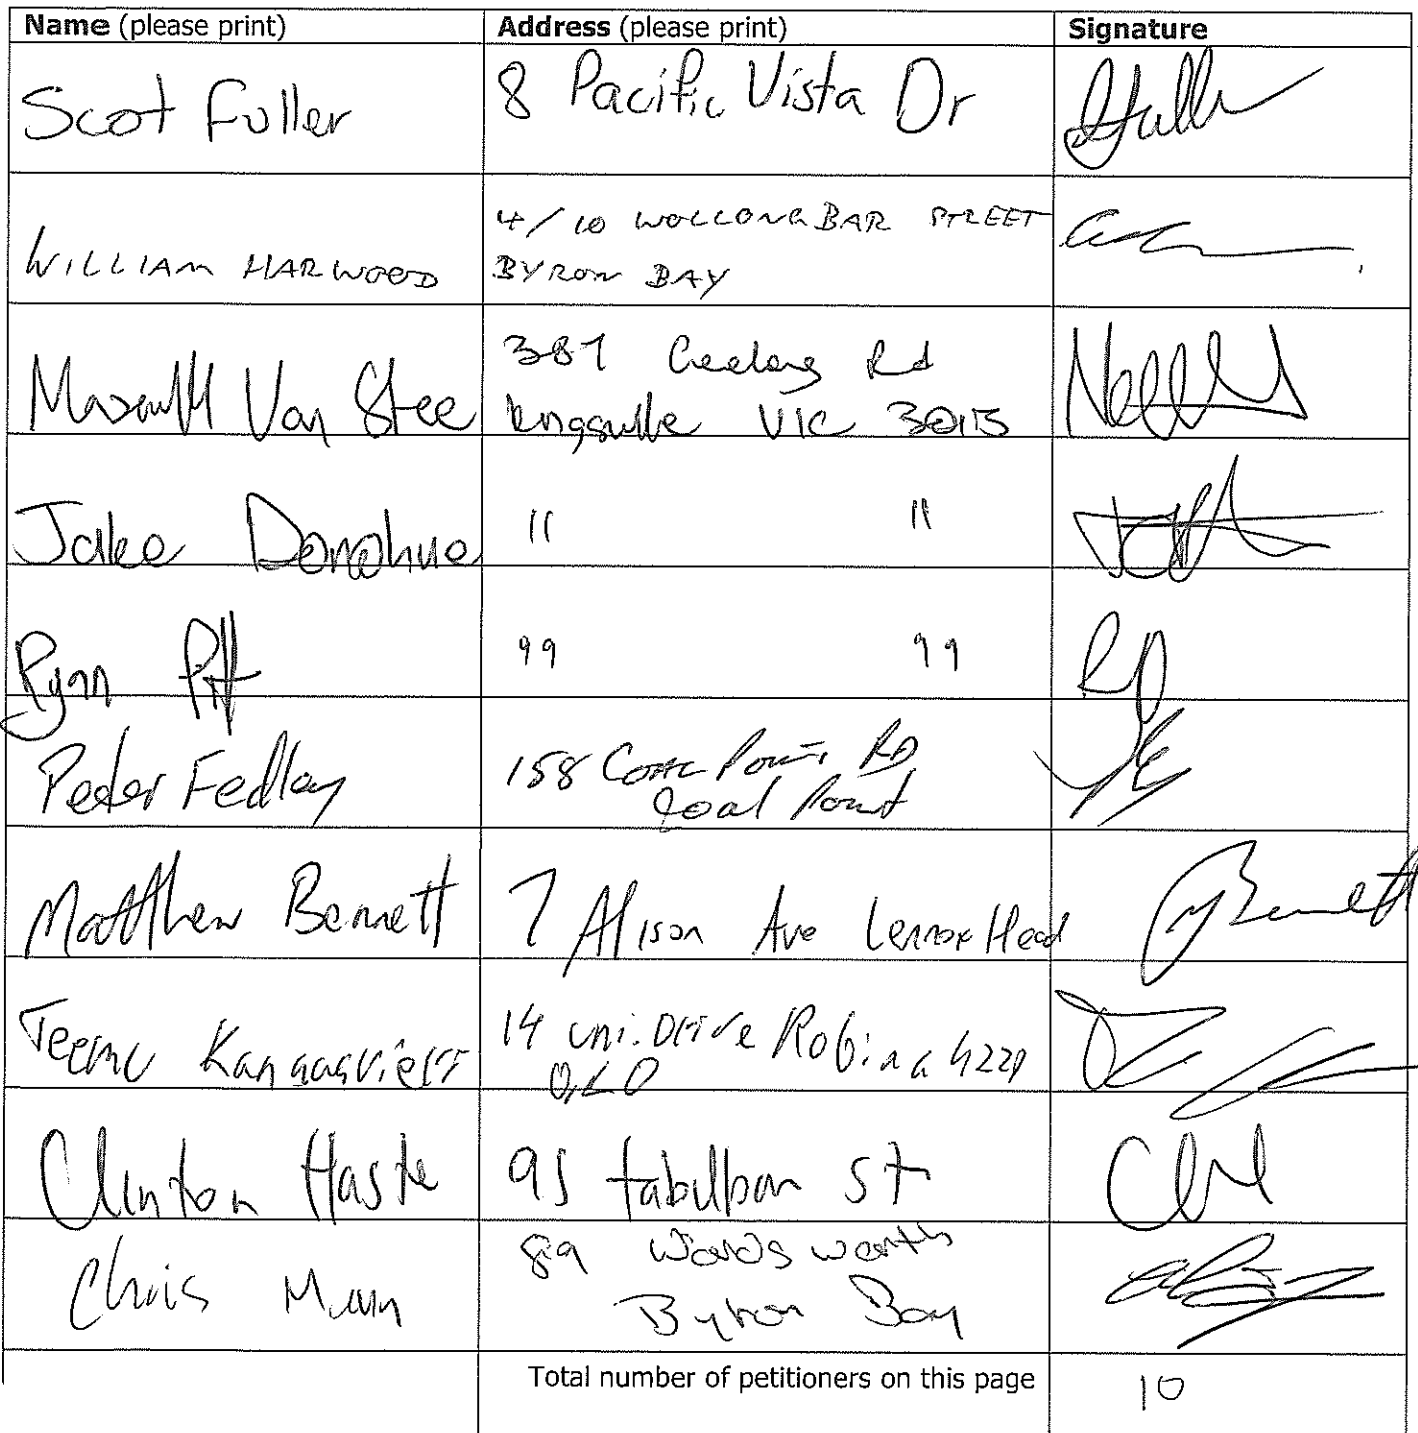 Name (please print) Address (please print) Signature
Scot Fuller 8 Pacific Vista Dr
WILLIAM HARWOOD 4/10 WOLLONGBAR STREET
BYRON BAY
Van Stee 387 Geelong Rd
Kingsville VIC 3013
Jake Donohue 11 11
Ryan Pitt 99 99
Peter Fedley 158 Coal Point RD
Coal Point
Matthew Bennett 7 Alison Ave Lennox Head
Teemu 14 Uni. Drive Robina 4227
QLD
Clinton Haste 95 St
Chris Munn 89 Wordsworth
Byron Bay
Total number of petitioners on this page 10